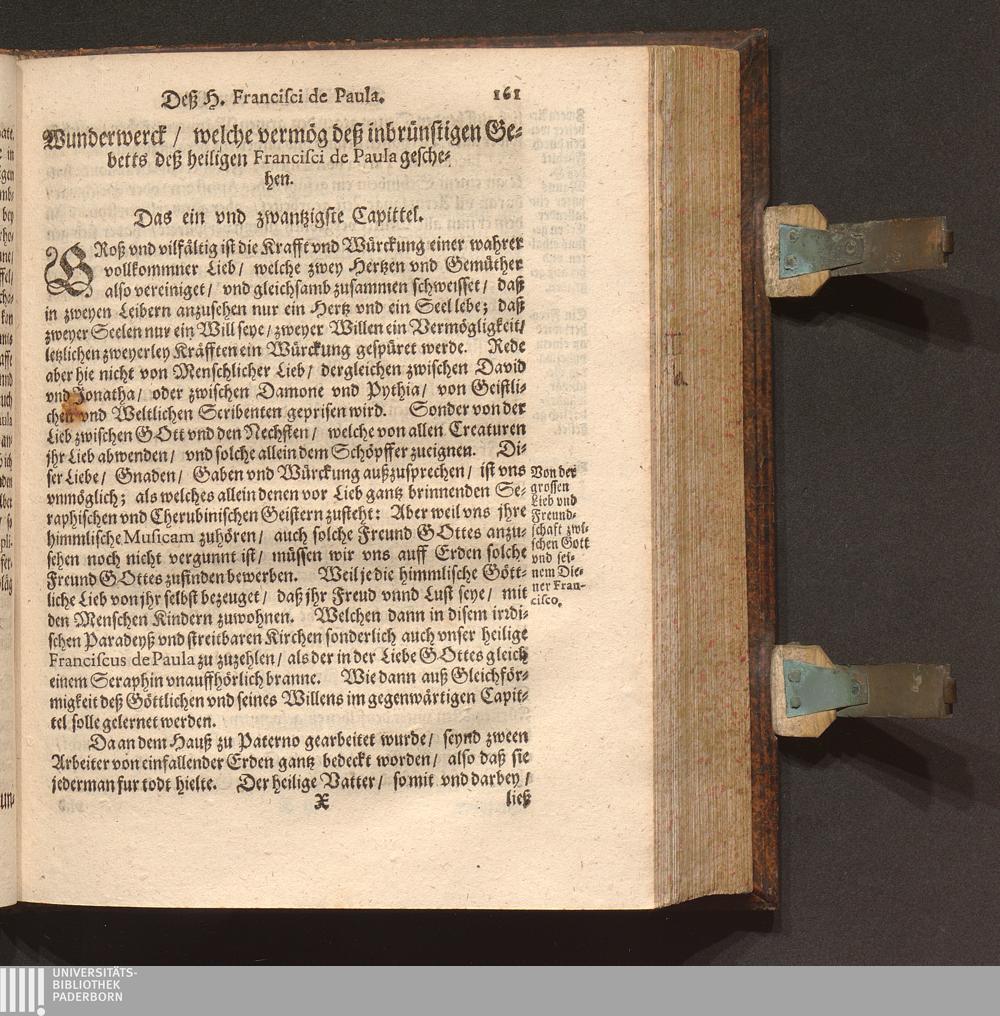 Deß H. Francisci de Paula. 161
Wunderwerck / welche vermög deß inbrünstigen Ge-
betts deß heiligen Francisci de Paula gesche-
hen.
Das ein vnd zwantzigste Capittel.
GRoß vnd vilfältig ist die Krafft vnd Würckung einer wahrer
vollkommner Lieb / welche zwey Hertzen vnd Gemüther
also vereiniget / vnd gleichsamb zusammen schweisset / daß
in zweyen Leibern anzusehen nur ein Hertz vnd ein Seel lebe; daß
zweyer Seelen nur ein Will seye / zweyer Willen ein Vermögligkeit /
letzlichen zweyerley Kräfften ein Würckung gespüret werde. Rede
aber hie nicht von Menschlicher Lieb / dergleichen zwischen David
vnd Jonatha / oder zwischen Damone vnd Pythia / von Geistli-
chen vnd Weltlichen Scribenten geprisen wird. Sonder von der
Lieb zwischen GOtt vnd den Nechsten / welche von allen Creaturen
jhr Lieb abwenden / vnd solche allein dem Schöpffer zueignen. Di-
ser Liebe / Gnaden / Gaben vnd Würckung außzusprechen / ist vns
vnmöglich; als welches allein denen vor Lieb gantz brinnenden Se-
raphischen vnd Cherubinischen Geistern zusteht: Aber weil vns jhre
himmlische Musicam zuhören / auch solche Freund GOttes anzu-
sehen noch nicht vergunnt ist / müssen wir vns auff Erden solche
Freund GOttes zufinden bewerben. Weil je die himmlische Gött-
liche Lieb von jhr selbst bezeuget / daß jhr Freud vnnd Lust seye / mit
den Menschen Kindern zuwohnen. Welchen dann in disem irrdi-
schen Paradeyß vnd streitbaren Kirchen sonderlich auch vnser heilige
Franciscus de Paula zu zuzehlen / als der in der Liebe GOttes gleich
einem Seraphin vnauffhörlich branne. Wie dann auß Gleichför-
migkeit deß Göttlichen vnd seines Willens im gegenwärtigen Capit-
tel solle gelernet werden.
Da an dem Hauß zu Paterno gearbeitet wurde / seynd zween
Arbeiter von einfallender Erden gantz bedeckt worden / also daß sie
jederman fur todt hielte. Der heilige Vatter / so mit vnd darbey /
X ließ
Von der
grossen
Lieb vnd
Freund-
schafft zwi-
schen Gott
vnd sei-
nem Die-
ner Fran-
cisco.
UNIVERSITÄTS-
BIBLIOTHEK
PADERBORN